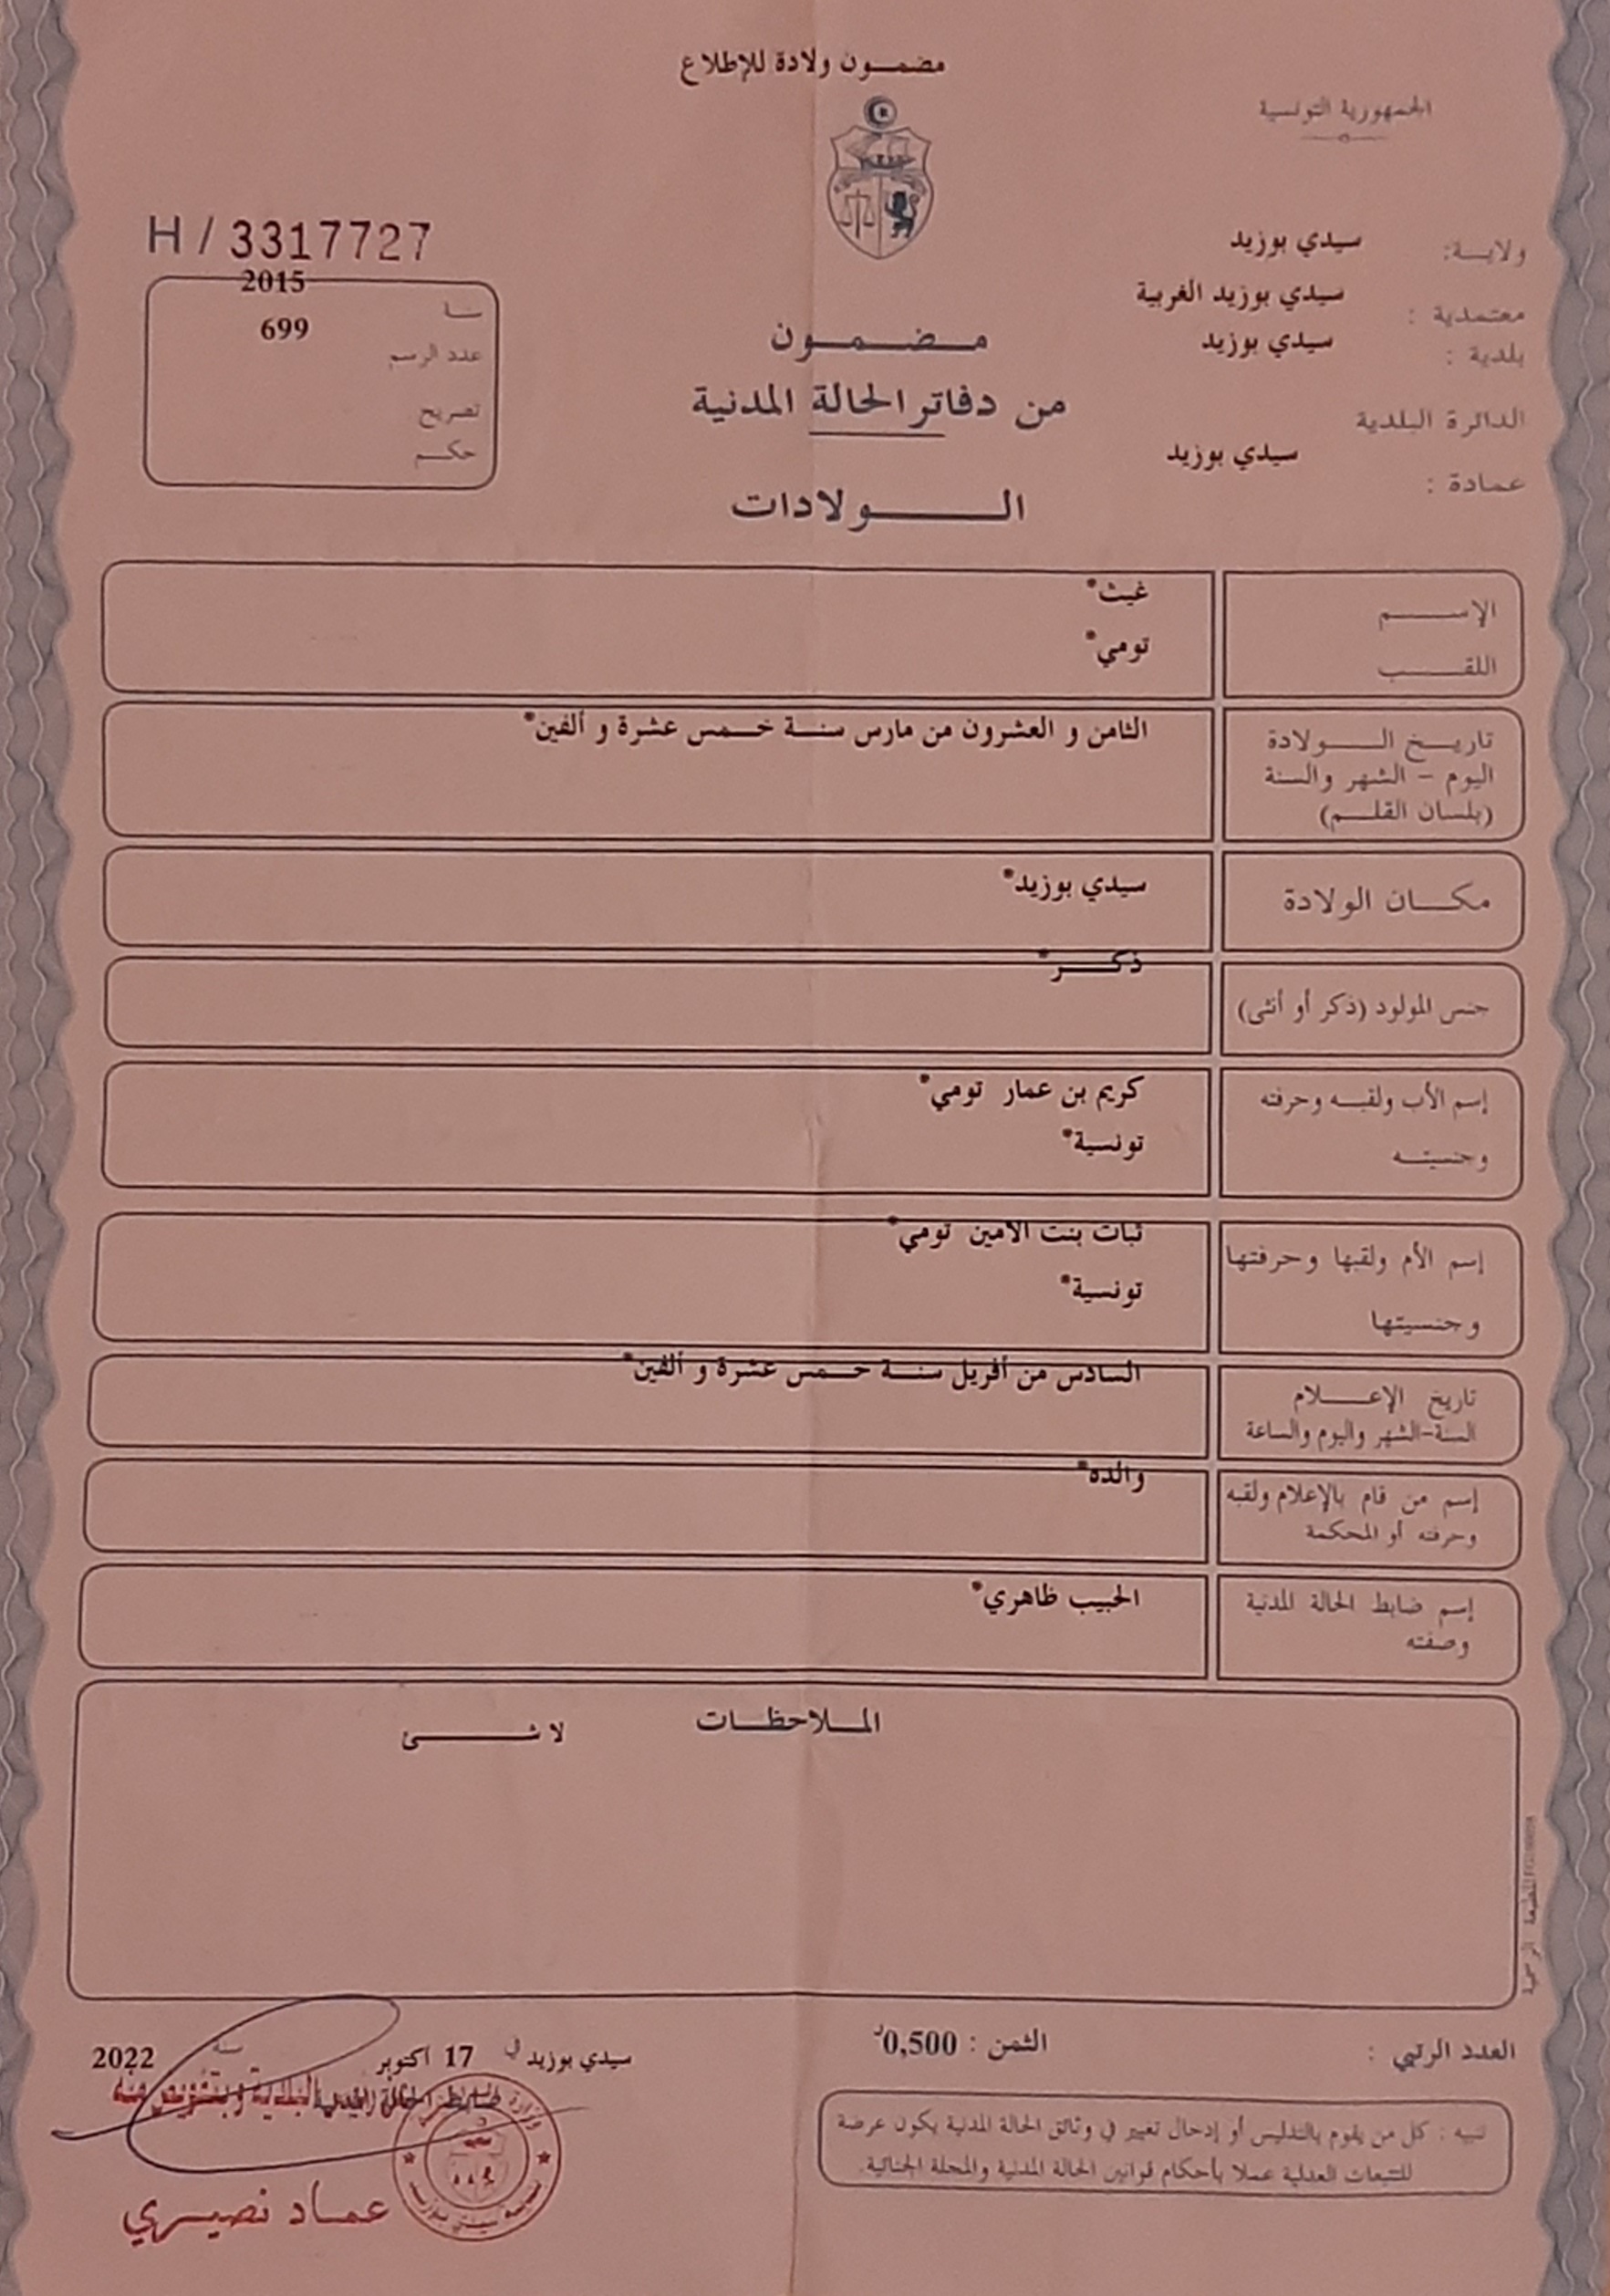 مضمون ولادة للإطلاع
الجمهورية التونسية
H / 3317727
ولاية: سيدي بوزيد
معتمدية : سيدي بوزيد الغربية
بلدية : سيدي بوزيد
الدائرة البلدية
عمادة : سيدي بوزيد
2015
سنة
699
عدد الرسم
تصريح
حكم
مضمون
من دفاتر الحالة المدنية
الولادات
الإسم غيث*
اللقب تومي*
تاريخ الولادة الثامن و العشرون من مارس سنة خمس عشرة و ألفين*
اليوم - الشهر والسنة
(بلسان القلم)
مكان الولادة سيدي بوزيد*
جنس المولود (ذكر أو أنثى) ذكر*
إسم الأب ولقبه وحرفته كريم بن عمار تومي*
وجنسيته تونسية*
إسم الأم ولقبها وحرفتها ثبات بنت الامين تومي*
وجنسيتها تونسية*
تاريخ الإعلام السادس من أفريل سنة خمس عشرة و ألفين*
السنة-الشهر واليوم والساعة
إسم من قام بالإعلام ولقبه والده*
وحرفته أو المحكمة
إسم ضابط الحالة المدنية الحبيب ظاهري*
وصفته
الملاحظات
لا شئ
المطبعة الرسمية
العدد الرتبي :
الثمن : 0,500د
سيدي بوزيد في 17 اكتوبر سنة 2022
البلدية وبتفويض منه
عماد نصيري
تنبيه : كل من يقوم بالتدليس أو إدخال تغيير في وثائق الحالة المدنية يكون عرضة
للتتبعات العدلية عملا بأحكام قوانين الحالة المدنية والمجلة الجنائية.